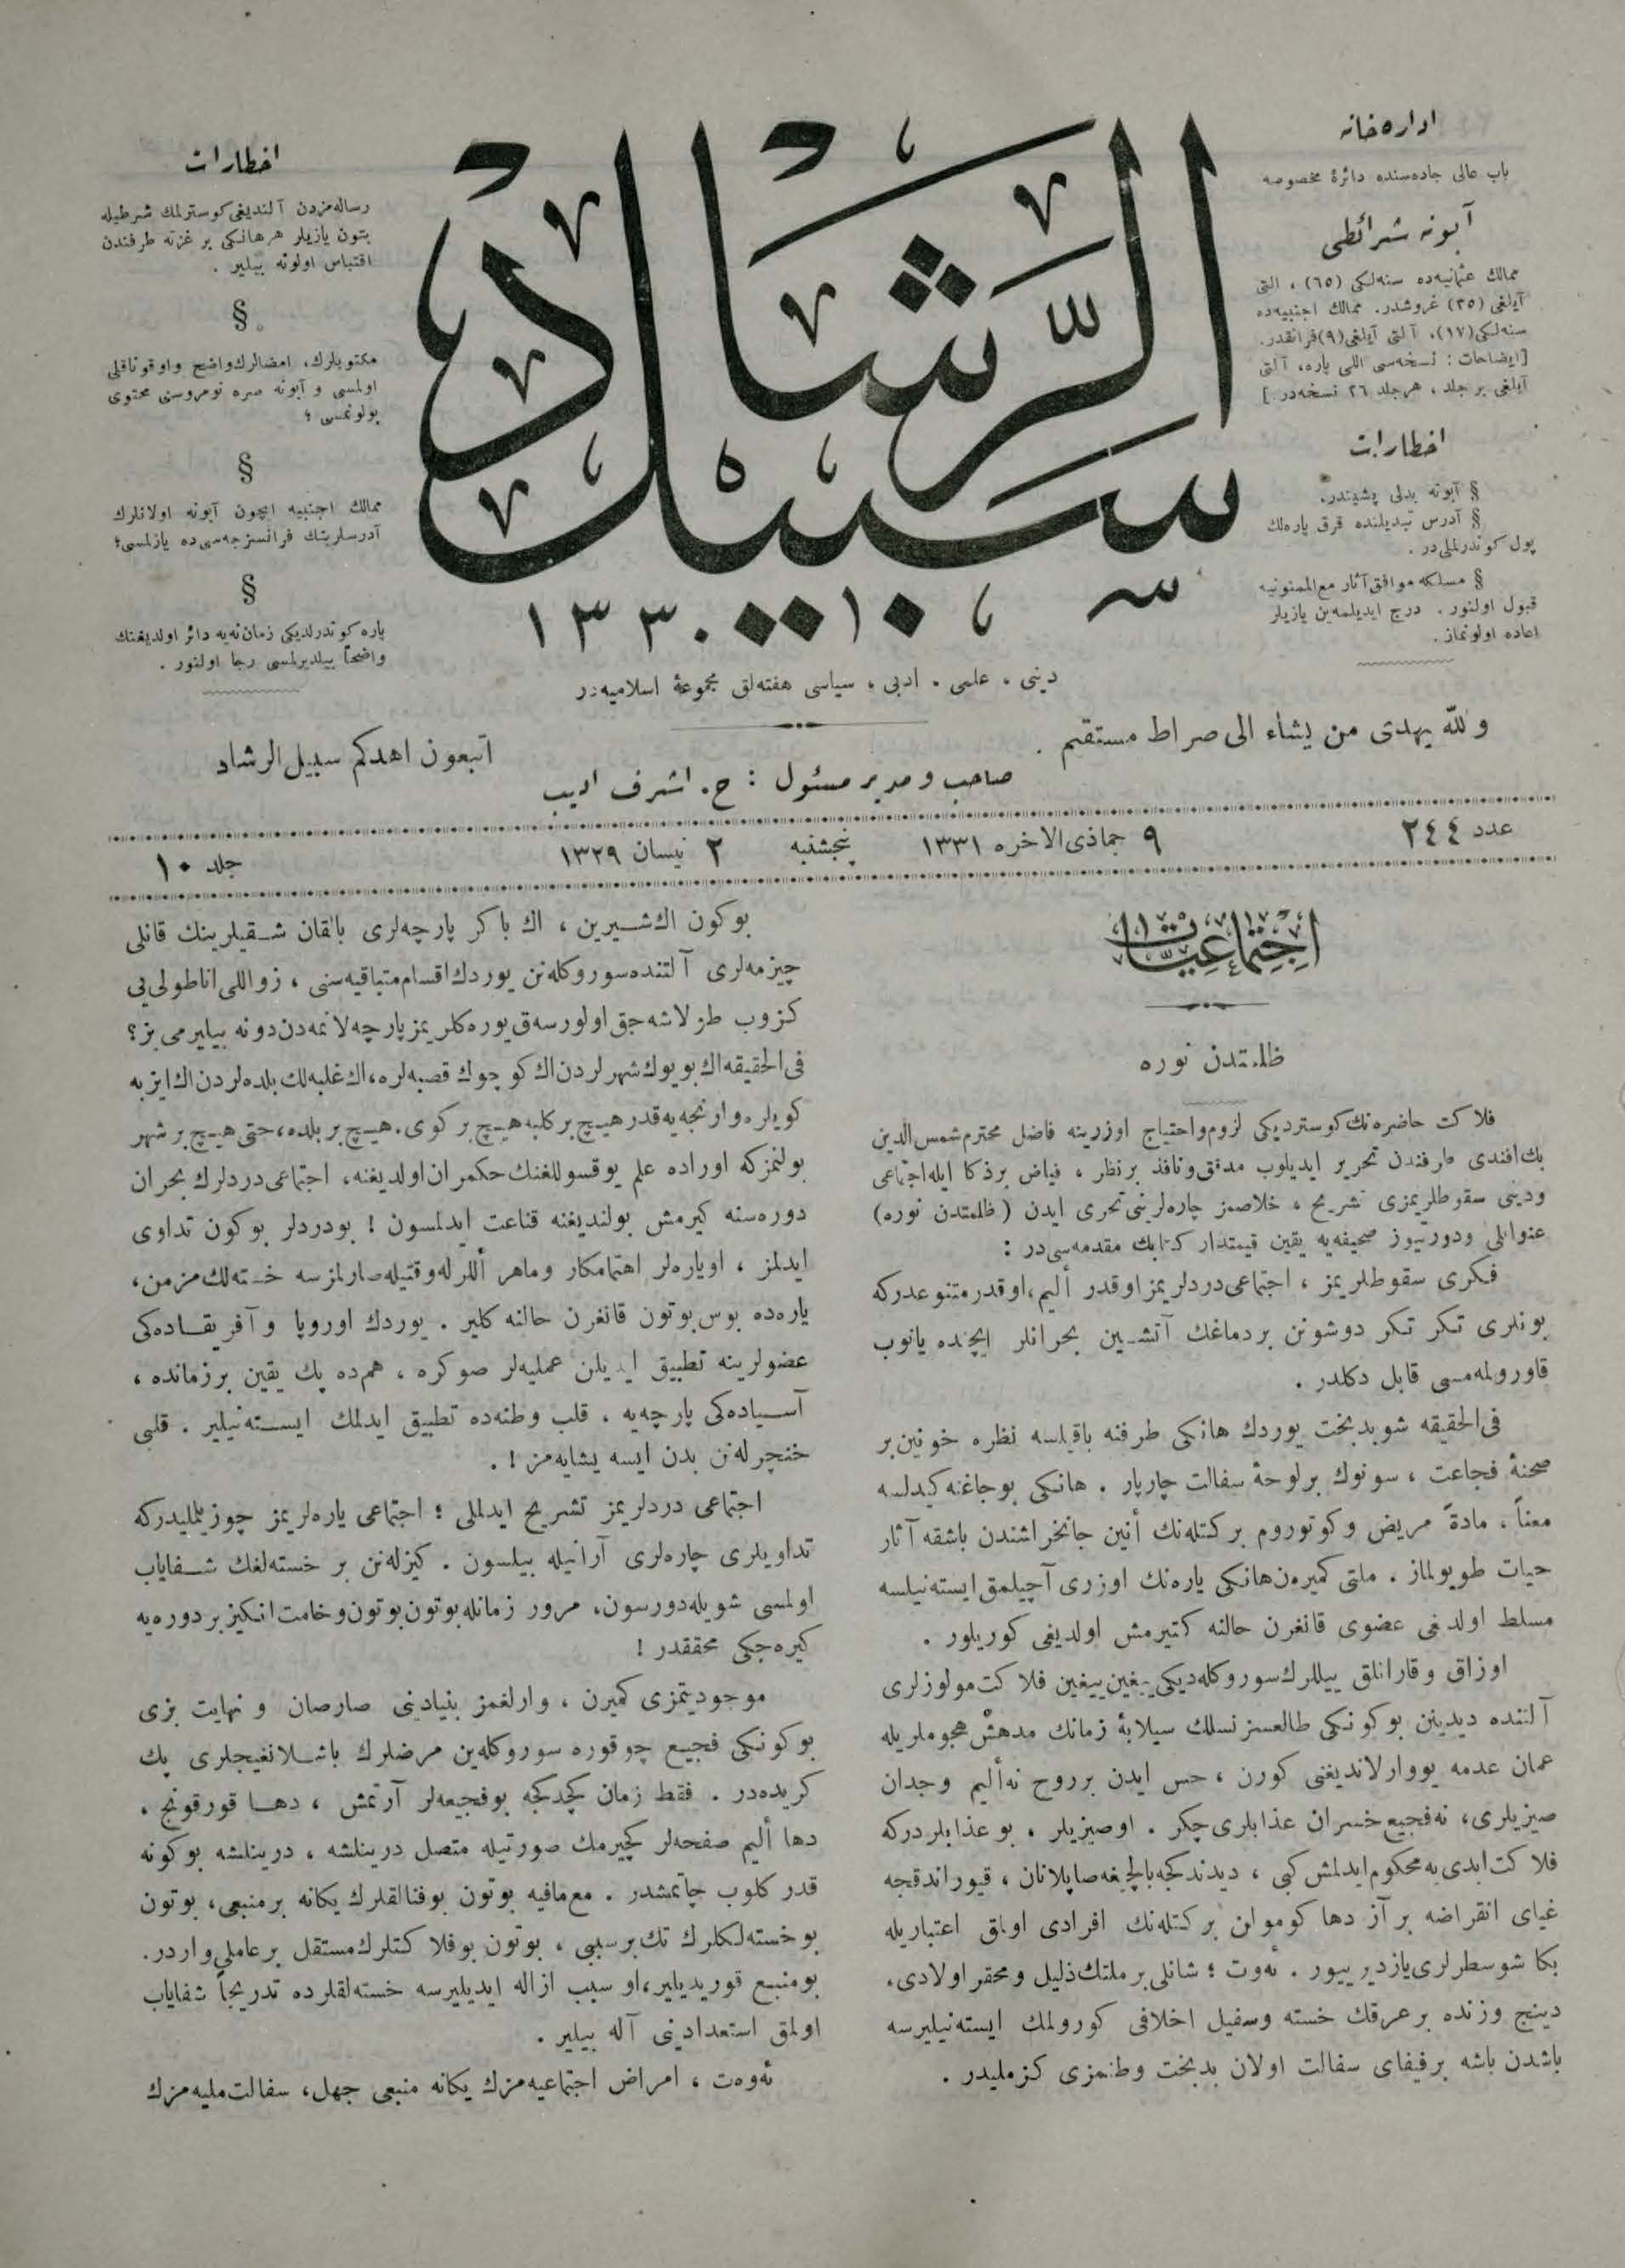 اداره‌خانه
باب عالی جاده‌سنده دائرهٔ مخصوصه
آبونه شرائطی
ممالك عثمانیه‌ده سنه‌لكی (٦٥) ، التی
آیلغی (٣٥) غروشدر. ممالك اجنبیه‌ده
سنه‌لكی (١٧)، آلتی آیلغی (٩) فرانقدر.
[ایضاحات : نسخه‌سی اللی پاره، آلتی
آیلغی بر جلد ، هر جلد ٢٦ نسخه‌در.]
اخطارات
§ آبونه بدلی پشیندر.
§ آدرس تبدیلنده قرق پاره‌لك
پول كوندرلملی‌در .
§ مسلكه موافق آثار مع‌الممنونیه
قبول اولنور . درج ایدیلمه‌ین یازیلر
اعاده اولونماز.
سبیل الرشاد
١٣٣٠
اخطارات
رساله‌مزدن آلندیغی كوسترلمك شرطیله
بتون یازیلر هر هانكی بر غزته طرفندن
اقتباس اولونه بیلیر .
§
مكتوبلرك، امضالرك واضح واوقوناقلی
اولمسی و آبونه صره نومروسنی محتوی
بولونمسی ؛
§
ممالك اجنبیه ایچون آبونه اولانلرك
آدرسلرینك فرانسزجه‌سی‌ده یازلمسی؛
§
پاره كوندرلدیكی زمان نه‌یه دائر اولدیغنك
واضحاً بیلدیرلمسی رجا اولنور .
دینی ، علمی ، ادبی ، سیاسی هفته‌لق مجموعهٔ اسلامیه‌در
والله یهدی من یشاء الی صراط مستقیم .
اتبعون اهدكم سبیل الرشاد
صاحب و مدیر مسئول : ح. اشرف ادیب
عدد ٢٤٤
٩ جمادی‌الاخره ١٣٣١
پنجشنبه
٢ نیسان ١٣٢٩
جلد ١٠
اجتماعیات
ظلمتدن نوره
فلاكت حاضره‌نك كوستردیكی لزوم واحتیاج اوزرینه فاضل محترم شمس‌الدین
بك افندی طرفندن تحریر ایدیلوب مدقق ونافذ برنظر ، فیاض برذكا ایله اجتماعی
ودینی سقوطلریمزی تشریح ، خلاصمز چاره‌لرینی تحری ایدن (ظلمتدن نوره)
عنوانلی ودورتیوز صحیفه‌یه یقین قیمتدار كتابك مقدمه‌سی‌در :
فكری سقوطلریمز ، اجتماعی دردلریمز اوقدر ألیم، اوقدر متنوعدركه
بونلری تكر تكر دوشونن بردماغك آتشین بحرانلر ایچنده یانوب
قاورولمه‌مسی قابل دكلدر .
فی‌الحقیقه شو بدبخت یوردك هانكی طرفنه باقیلسه نظره خونین بر
صحنهٔ فجاعت ، سونوك برلوحهٔ سفالت چارپار . هانكی بوجاغنه كیدلسه
معناً ، مادةً مریض وكوتوروم بركتله‌نك أنین جانخراشندن باشقه آثار
حیات طویولماز . ملتی كمیره‌ن هانكی یاره‌نك اوزری آچیلمق ایسته‌نیلسه
مسلط اولدغی عضوی قانغرن حالنه كتیرمش اولدیغی كوریلور .
اوزاق وقارانلق ییللرك سوروكله‌دیكی ییغین ییغین فلاكت مولوزلری
آلتنده دیدینن بوكونكی طالعسز نسلك سیلابهٔ زمانك مدهش هجوملریله
عمان عدمه یووارلاندیغنی كورن ، حس ایدن برروح نه‌ألیم وجدان
صیزیلری، نه‌فجیع خسران عذابلری چكر . اوصیزیلر ، بوعذابلردركه
فلاكت ابدی‌یه محكوم ایدلمش كبی ، دیدندكجه بالچیغه صاپلانان ، قیوراندقجه
غیای انقراضه برآز دها كومولن بركتله‌نك افرادی اولمق اعتباریله
بكا شوسطرلری یازدیرییور . ئه‌وت ؛ شانلی برملتك ذلیل ومحقر اولادی،
دینج وزنده برعرقك خسته وسفیل اخلافی كورولمك ایسته‌نیلیرسه
باشدن باشه برفیفای سفالت اولان بدبخت وطنمزی كزملیدر .
بوكون اك شیرین ، اك باكر پارچه‌لری بالقان شقیلرینك قانلی
چیزمه‌لری آلتنده سوروكله‌نن یوردك اقسام متباقیه‌سنی ، زواللی اناطولی‌یی
كزوب طولاشه‌جق اولورسه‌ق یوره‌كلریمز پارچه‌لانمه‌دن دونه بیلیرمی‌یز؟
فی‌الحقیقه اك بویوك شهرلردن اك كوچوك قصبه‌لره، اك غلبه‌لك بلده‌لردن اك ایزبه
كویلره وارنجه‌یه قدر هیچ بركلبه هیچ بركوی. هیچ بر بلده، حتی هیچ بر شهر
بولنمزكه اوراده علم یوقسوللغنك حكمران اولدیغنه، اجتماعی دردلرك بحران
دوره‌سنه كیرمش بولندیغنه قناعت ایدلمسون ! بودردلر بوكون تداوی
ایدلمز ، اویاره‌لر اهتمامكار وماهر أللرله وقتیله صارلمزسه خسته‌لك مزمن،
یاره‌ده بوس بوتون قانغرن حالنه كلیر . یوردك اوروپا و آفریقاده‌كی
عضولرینه تطبیق ایدیلن عملیه‌لر صوكره ، هم‌ده پك یقین برزمانده ،
آسیاده‌كی پارچه‌یه ، قلب وطنه‌ده تطبیق ایدلمك ایسته‌نیلیر . قلبی
خنچرله‌نن بدن ایسه یشایه‌مز ! .
اجتماعی دردلریمز تشریح ایدلملی ؛ اجتماعی یاره‌لریمز چوزیلملیدركه
تداویلری چاره‌لری آرانیله بیلسون . كیزله‌نن بر خسته‌لغك شفایاب
اولمسی شویله‌دورسون، مرور زمانله بوتون بوتون وخامت انكیز بردوره‌یه
كیره‌جكی محققدر !
موجودیتمزی كمیرن ، وارلغمز بنیادینی صارصان و نهایت بزی
بوكونكی فجیع چوقوره سوروكله‌ین مرضلرك باشلانغیجلری پك
كریده‌در . فقط زمان كچدكجه بوفجیعه‌لر آرتمش ، دها قورقونج ،
دها ألیم صفحه‌لر كچیرمك صورتیله متصل درینلشه ، درینلشه بوكونه
قدر كلوب چاتمشدر . مع‌مافیه بوتون بوفنالقلرك یكانه برمنبعی، بوتون
بوخسته‌لكلرك تك برسببی ، بوتون بوفلاكتلرك مستقل برعاملی واردر.
بومنبع قوریدیلیر، او سبب ازاله ایدیلیرسه خسته‌لقلرده تدریجاً شفایاب
اولمق استعدادینی آله بیلیر .
ئه‌وه‌ت ، امراض اجتماعیه‌مزك یكانه منبعی جهل، سفالت ملیه‌مزك